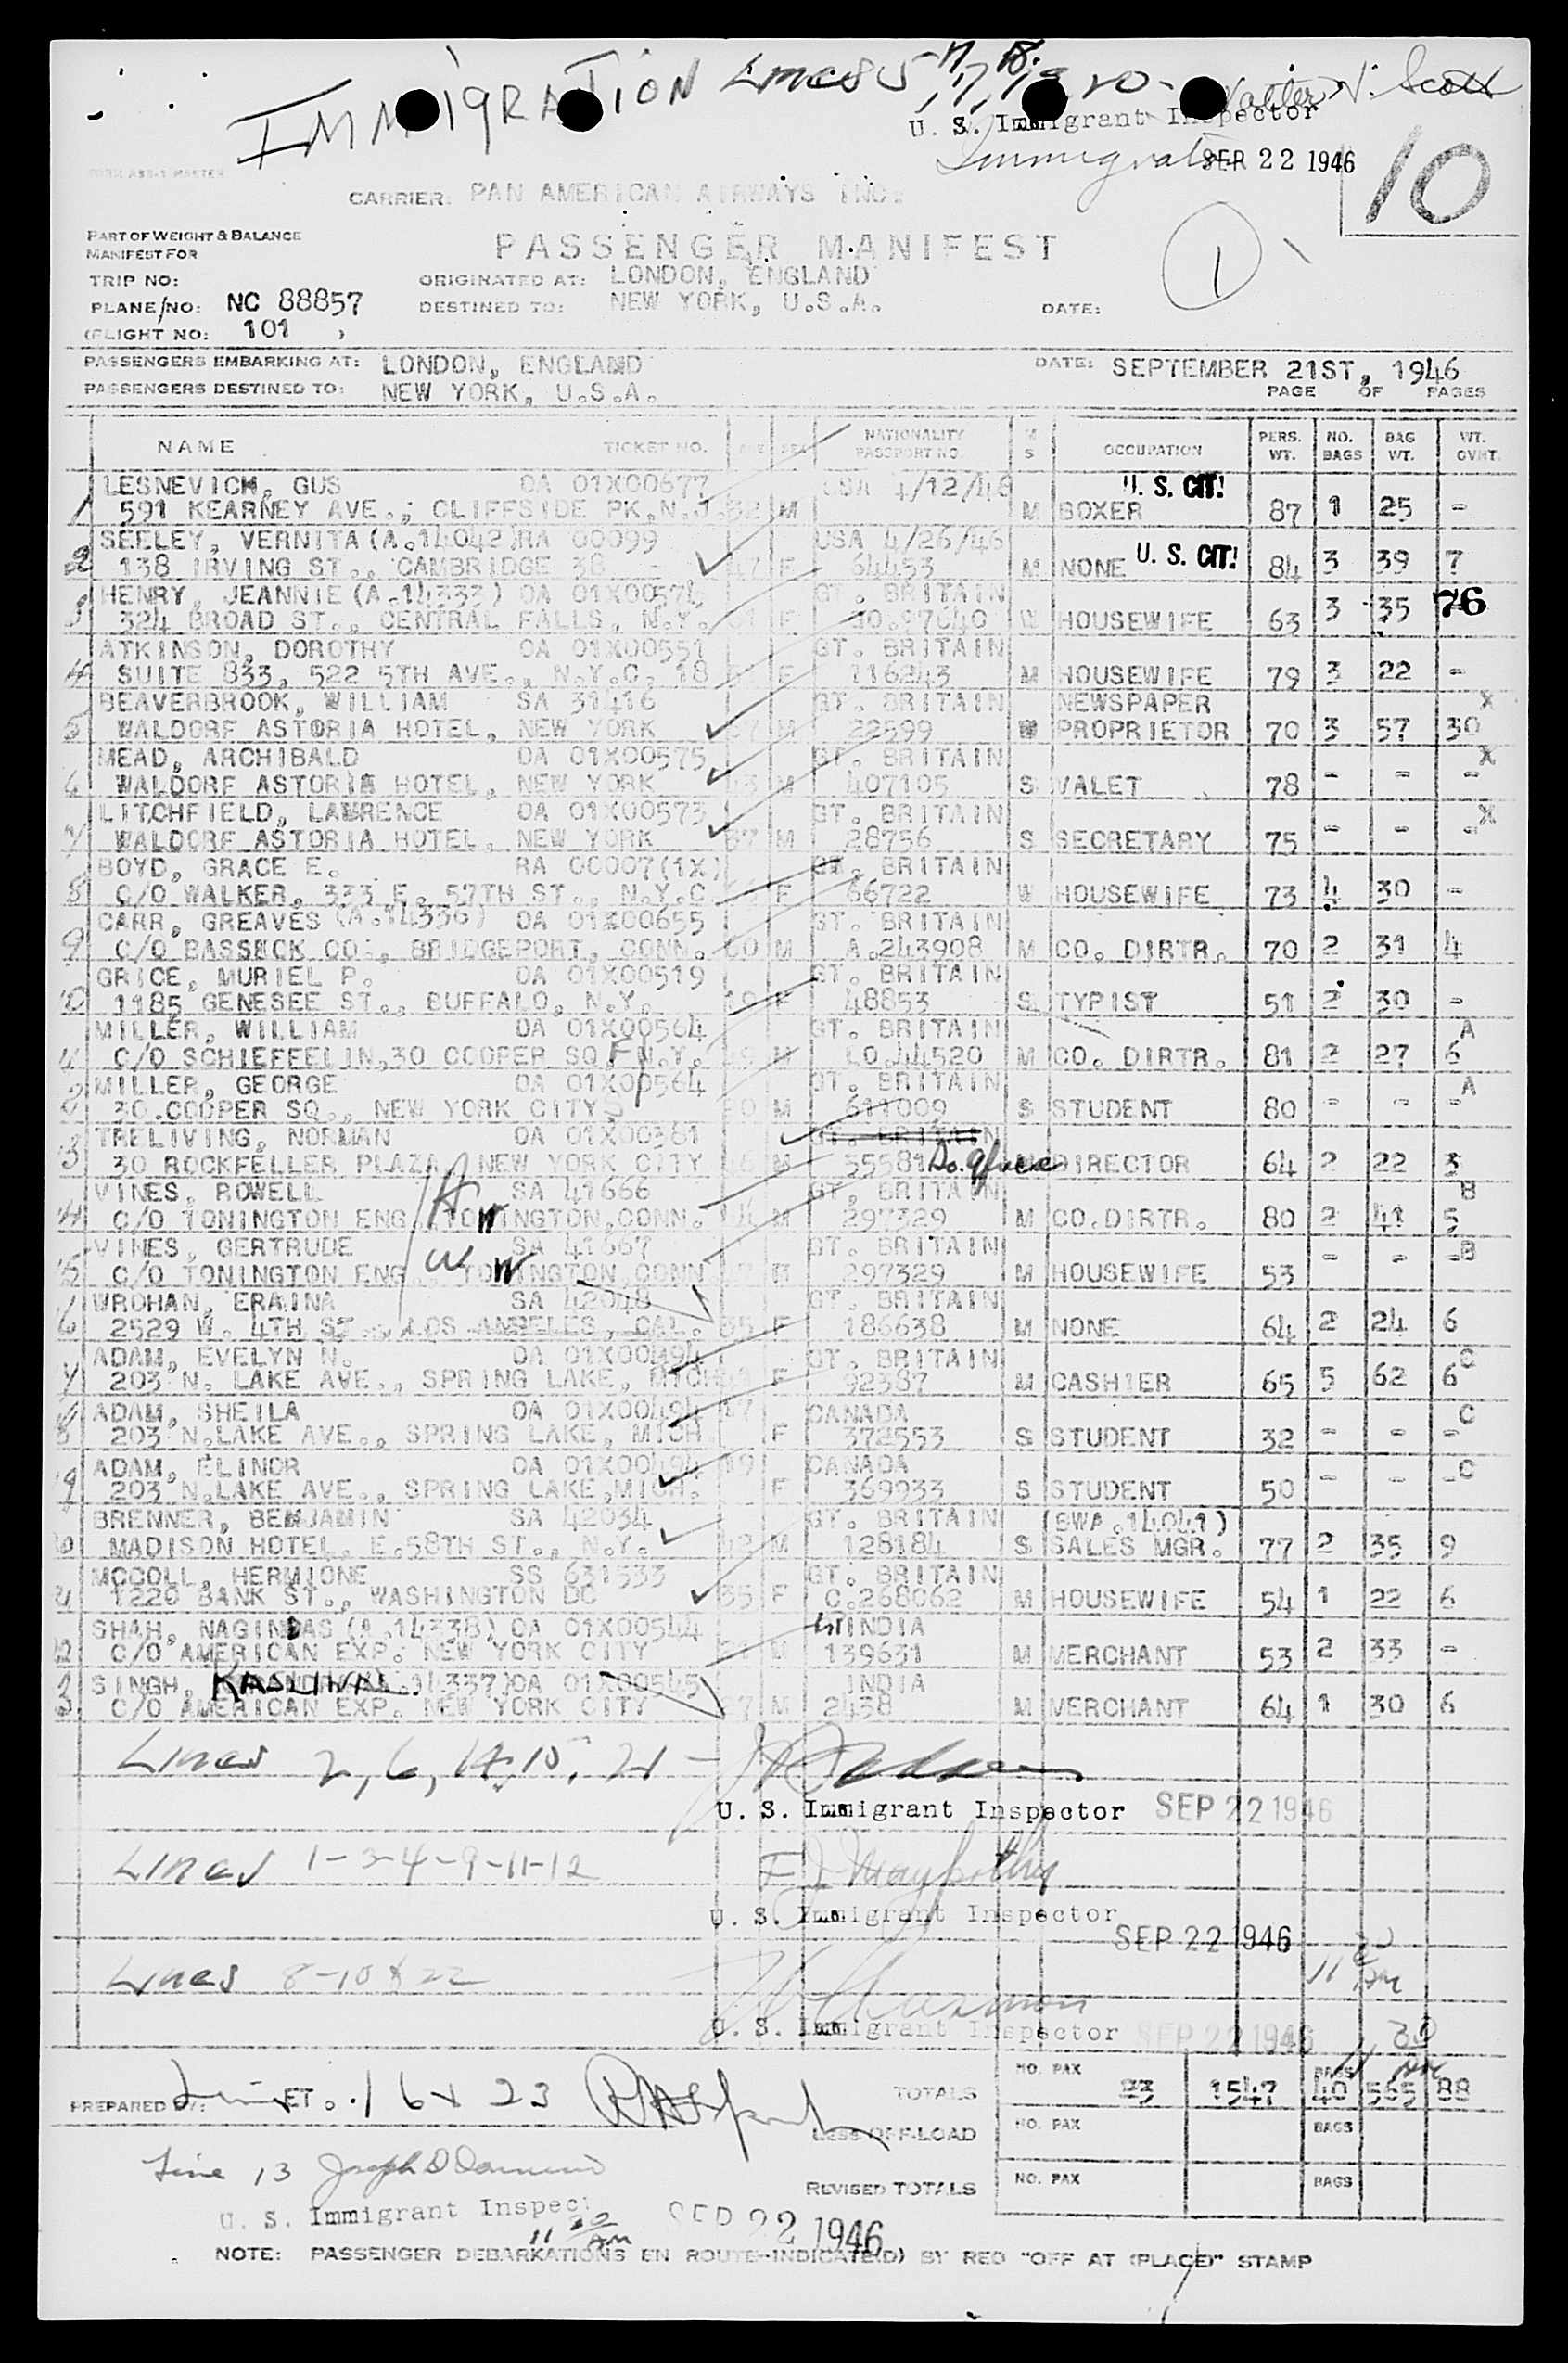 IMMIGRATION Lines 5, 7, 17, 18, 19, 20 - Walter N. Scott
U. S. Immigrant Inspector
Immigration SEP 22 1946
10
CARRIER: PAN AMERICAN AIRWAYS INC.
PART OF WEIGHT & BALANCE
MANIFEST FOR
PASSENGER MANIFEST
1
TRIP NO: ORIGINATED AT: LONDON, ENGLAND
PLANE/NO: NC 88857 DESTINED TO: NEW YORK, U.S.A. DATE:
(FLIGHT NO: 101 )
PASSENGERS EMBARKING AT: LONDON, ENGLAND DATE: SEPTEMBER 21ST, 1946
PASSENGERS DESTINED TO: NEW YORK, U.S.A. PAGE OF PAGES
NAME TICKET NO. AGE SEX NATIONALITY PASSPORT NO. M S OCCUPATION PERS. WT. NO. BAGS BAG WT. WT. OVHT.
LESNEVICH, GUS OA 01X00677 USA 4/12/46 U. S. CIT!
1 591 KEARNEY AVE., CLIFFSIDE PK, N.J. 32 M M BOXER 87 1 25 -
SEELEY, VERNITA (A.14042) RA 00099 USA 4/26/46 U. S. CIT!
2 138 IRVING ST., CAMBRIDGE 38 47 F 64453 M NONE 84 3 39 7
HENRY, JEANNIE (A.14333) OA 01X00574 GT. BRITAIN
3 324 BROAD ST., CENTRAL FALLS, N.Y. F 97640 W HOUSEWIFE 63 3 35 76
ATKINSON, DOROTHY OA 01X00551 GT. BRITAIN
4 SUITE 833, 522 5TH AVE., N.Y.C. 18 F 116243 M HOUSEWIFE 79 3 22 -
BEAVERBROOK, WILLIAM SA 31416 GT. BRITAIN NEWSPAPER X
5 WALDORF ASTORIA HOTEL, NEW YORK 67 M 22599 W PROPRIETOR 70 3 57 30
MEAD, ARCHIBALD OA 01X00575 GT. BRITAIN X
6 WALDORF ASTORIA HOTEL, NEW YORK M 407105 S VALET 78 - - -
LITCHFIELD, LAWRENCE OA 01X00573 GT. BRITAIN X
7 WALDORF ASTORIA HOTEL, NEW YORK 37 M 28756 S SECRETARY 75 - - -
BOYD, GRACE E. RA 00007(1X) GT. BRITAIN
8 C/O WALKER, 333 E. 57TH ST., N.Y.C F 66722 W HOUSEWIFE 73 4 30 -
CARR, GREAVES (A.14336) OA 01X00655 GT. BRITAIN
9 C/O BASSICK CO., BRIDGEPORT, CONN. 60 M A.243908 M CO. DIRTR. 70 2 31 4
GRICE, MURIEL P. OA 01X00519 GT. BRITAIN
10 1185 GENESEE ST., BUFFALO, N.Y. 19 F 48853 S TYPIST 51 2 30 -
MILLER, WILLIAM OA 01X00564 GT. BRITAIN A
11 C/O SCHIEFFELIN, 30 COOPER SQ. N.Y. M LO.44520 M CO. DIRTR. 81 2 27 6
MILLER, GEORGE OA 01X00564 GT. BRITAIN A
12 30 COOPER SQ., NEW YORK CITY 20 M 611009 S STUDENT 80 - - -
TRELIVING, NORMAN OA 01X00381 GT. BRITAIN
13 30 ROCKFELLER PLAZA, NEW YORK CITY 46 M 55581 So. Africa DIRECTOR 64 2 22 3
VINES, ROWELL SA 41666 GT. BRITAIN B
14 C/O TONINGTON ENG. TONINGTON, CONN. M 297329 M CO.DIRTR. 80 2 41 5
VINES, GERTRUDE SA 41667 GT. BRITAIN B
15 C/O TONINGTON ENG. TONINGTON, CONN F 297329 M HOUSEWIFE 53 - - -
WROHAN, ERAINA SA 42048 GT. BRITAIN
16 2529 W. 4TH ST., LOS ANGELES, CAL. 35 F 186638 M NONE 64 2 24 6
ADAM, EVELYN N. OA 01X00494 GT. BRITAIN C
17 203 N. LAKE AVE., SPRING LAKE, MICH F 92387 M CASHIER 65 5 62 6
ADAM, SHEILA OA 01X00494 17 CANADA C
18 203 N.LAKE AVE., SPRING LAKE, MICH F 372553 S STUDENT 32 - - -
ADAM, ELINOR OA 01X00494 19 CANADA C
19 203 N.LAKE AVE., SPRING LAKE, MICH. F 369933 S STUDENT 50 - - -
BRENNER, BENJAMIN SA 42034 GT. BRITAIN (BWA.14041)
20 MADISON HOTEL, E.58TH ST., N.Y. 42 M 128184 S SALES MGR. 77 2 35 9
MCCOLL, HERMIONE SS 631533 GT. BRITAIN
21 1220 BANK ST., WASHINGTON DC 35 F C.268062 M HOUSEWIFE 54 1 22 6
SHAH, NAGINDAS (A.14338) OA 01X00544 INDIA
22 C/O AMERICAN EXP. NEW YORK CITY M 139631 M MERCHANT 53 2 33 -
SINGH, 14337) OA 01X00545 INDIA
23 C/O AMERICAN EXP. NEW YORK CITY 27 M 2438 M MERCHANT 64 1 30 6
Lines 2, 6, 14, 15, 21 -
U. S. Immigrant Inspector SEP 22 1946
Lines 1-3-4-9-11-12
U. S. Immigrant Inspector
SEP 22 1946
11 30 AM
Lines 8-10 & 22
U. S. Immigrant Inspector SEP 22 1946
NO. PAX BAGS
TOTALS 23 1547 40 565 88
PREPARED BY: Line ET. 16 & 23
LESS OFF-LOAD NO. PAX BAGS
Line 13
REVISED TOTALS NO. PAX BAGS
U. S. Immigrant Inspect SEP 22 1946
11 30 AM
NOTE: PASSENGER DEBARKATIONS EN ROUTE-INDICATE(D) BY RED "OFF AT (PLACE)" STAMP